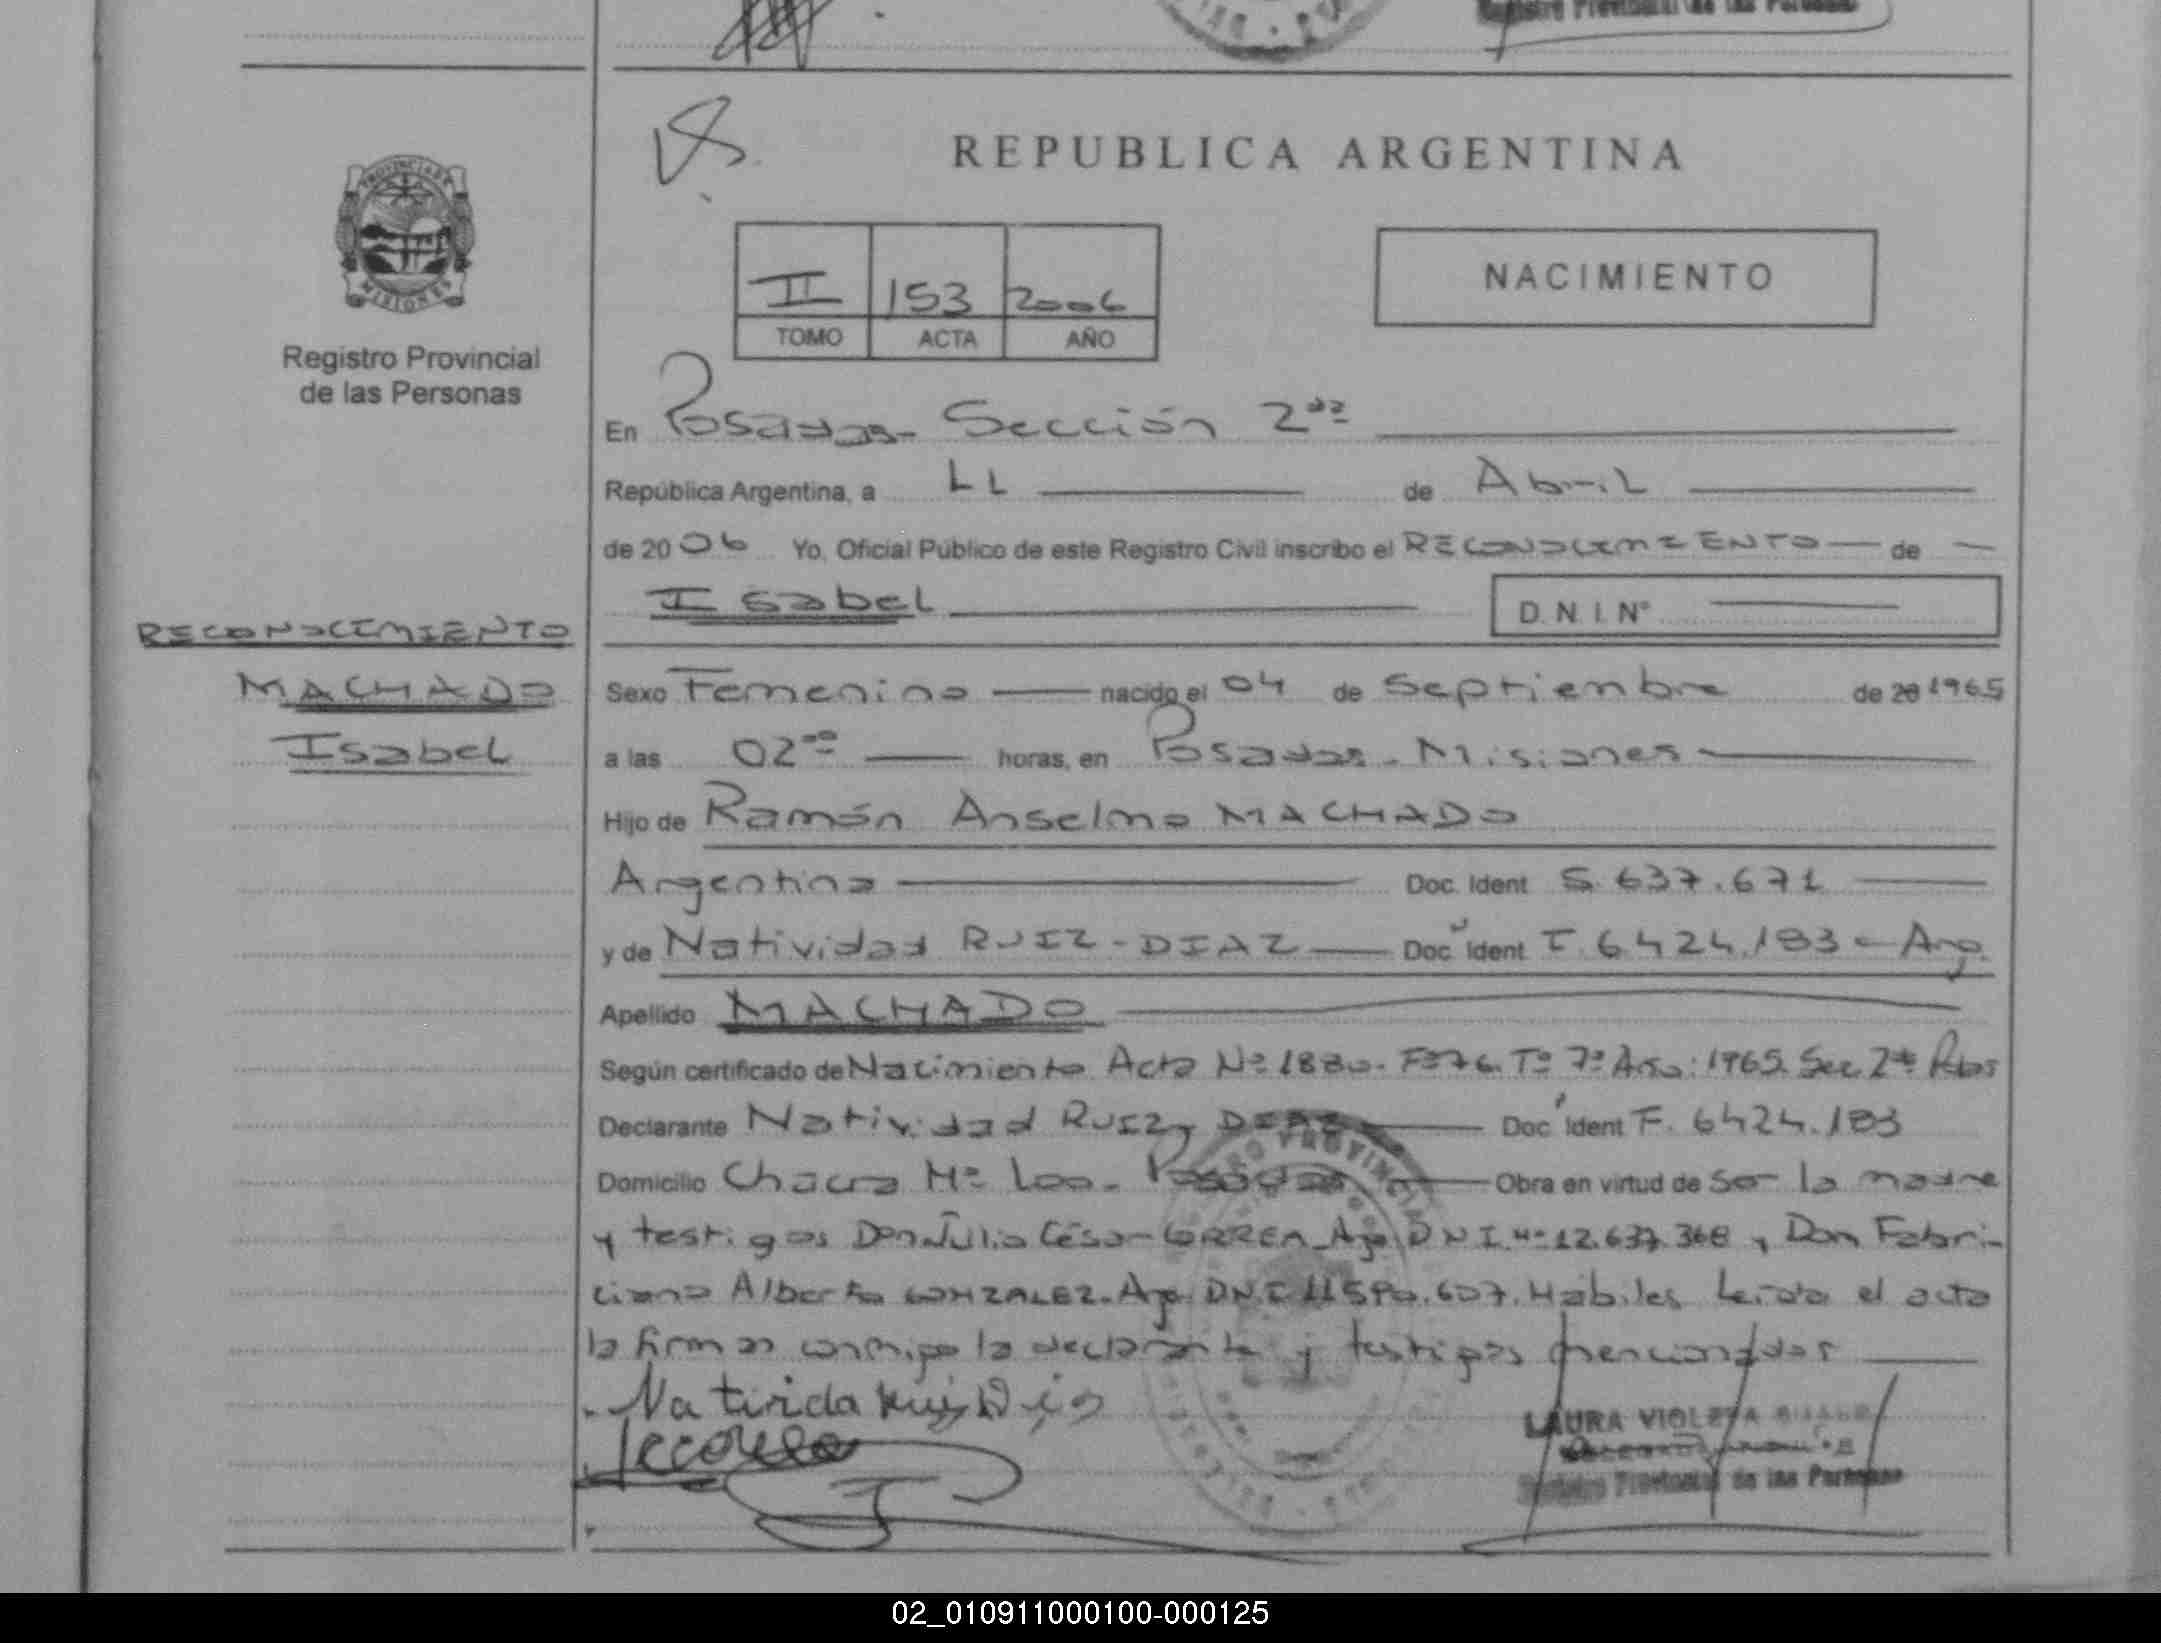 Registro Provincial de las Personas
REPUBLICA ARGENTINA
PROVINCIA DE
MISIONES
II 153 2006
TOMO ACTA AÑO
NACIMIENTO
Registro Provincial
de las Personas
En Posadas- Sección 2da
República Argentina, a 11 de Abril
de 2006 Yo, Oficial Público de este Registro Civil inscribo el RECONOCIMIENTO de
Isabel D.N.I. Nº
RECONOCIMIENTO
MACHADO
Isabel
Sexo Femenino nacido el 04 de Septiembre de 20 1965
a las 02 00 horas, en Posadas - Misiones
Hijo de Ramón Anselmo MACHADO
Argentino Doc. Ident 5.637.671
y de Natividad RUIZ-DIAZ Doc. Ident F. 6424.183 - Arg.
Apellido MACHADO
Según certificado de Nacimiento Acta Nº 1880. Fº 76. Tº 7º Año: 1965. Sec. 2da Pdas
Declarante Natividad RUIZ DIAZ Doc. Ident F. 6424.183
Domicilio Chacra Nº 100 - Posadas Obra en virtud de ser la madre
y testigos Don Julio César CORREA Arg. DNI. Nº 12.637.368 y Don Fabri-
ciano Alberto GONZALEZ. Arg. DNI 11590.607. Hábiles Leída el acta
la firman conmigo la declarante y testigos mencionados
Natividad Ruiz Diaz
LAURA VIOLETA
Registro Provincial de las Personas
02_010911000100-000125